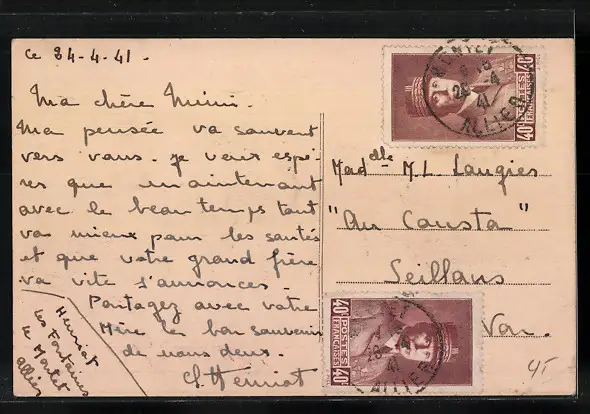 Ce 24-4-41.
Ma chère Mimi.
Ma pensée va souvent
vers vous. je veux espé-
rer que maintenant
avec le beau temps tout
va mieux pour les santés
et que votre grand frère
va vite s'annoncer.
Partagez avec votre
Mère le bon souvenir
de nous deux.
S. Henriot
Henriot
les Fontaines
le Montet
Allier
40F POSTES FRANÇAISES 40F
LE MONTET
26-4
41
ALLIER
Madelle M.L. Laugier
"Au Causta"
Seillans
Var.
40F POSTES FRANÇAISES 40F
41
ALLIER
45